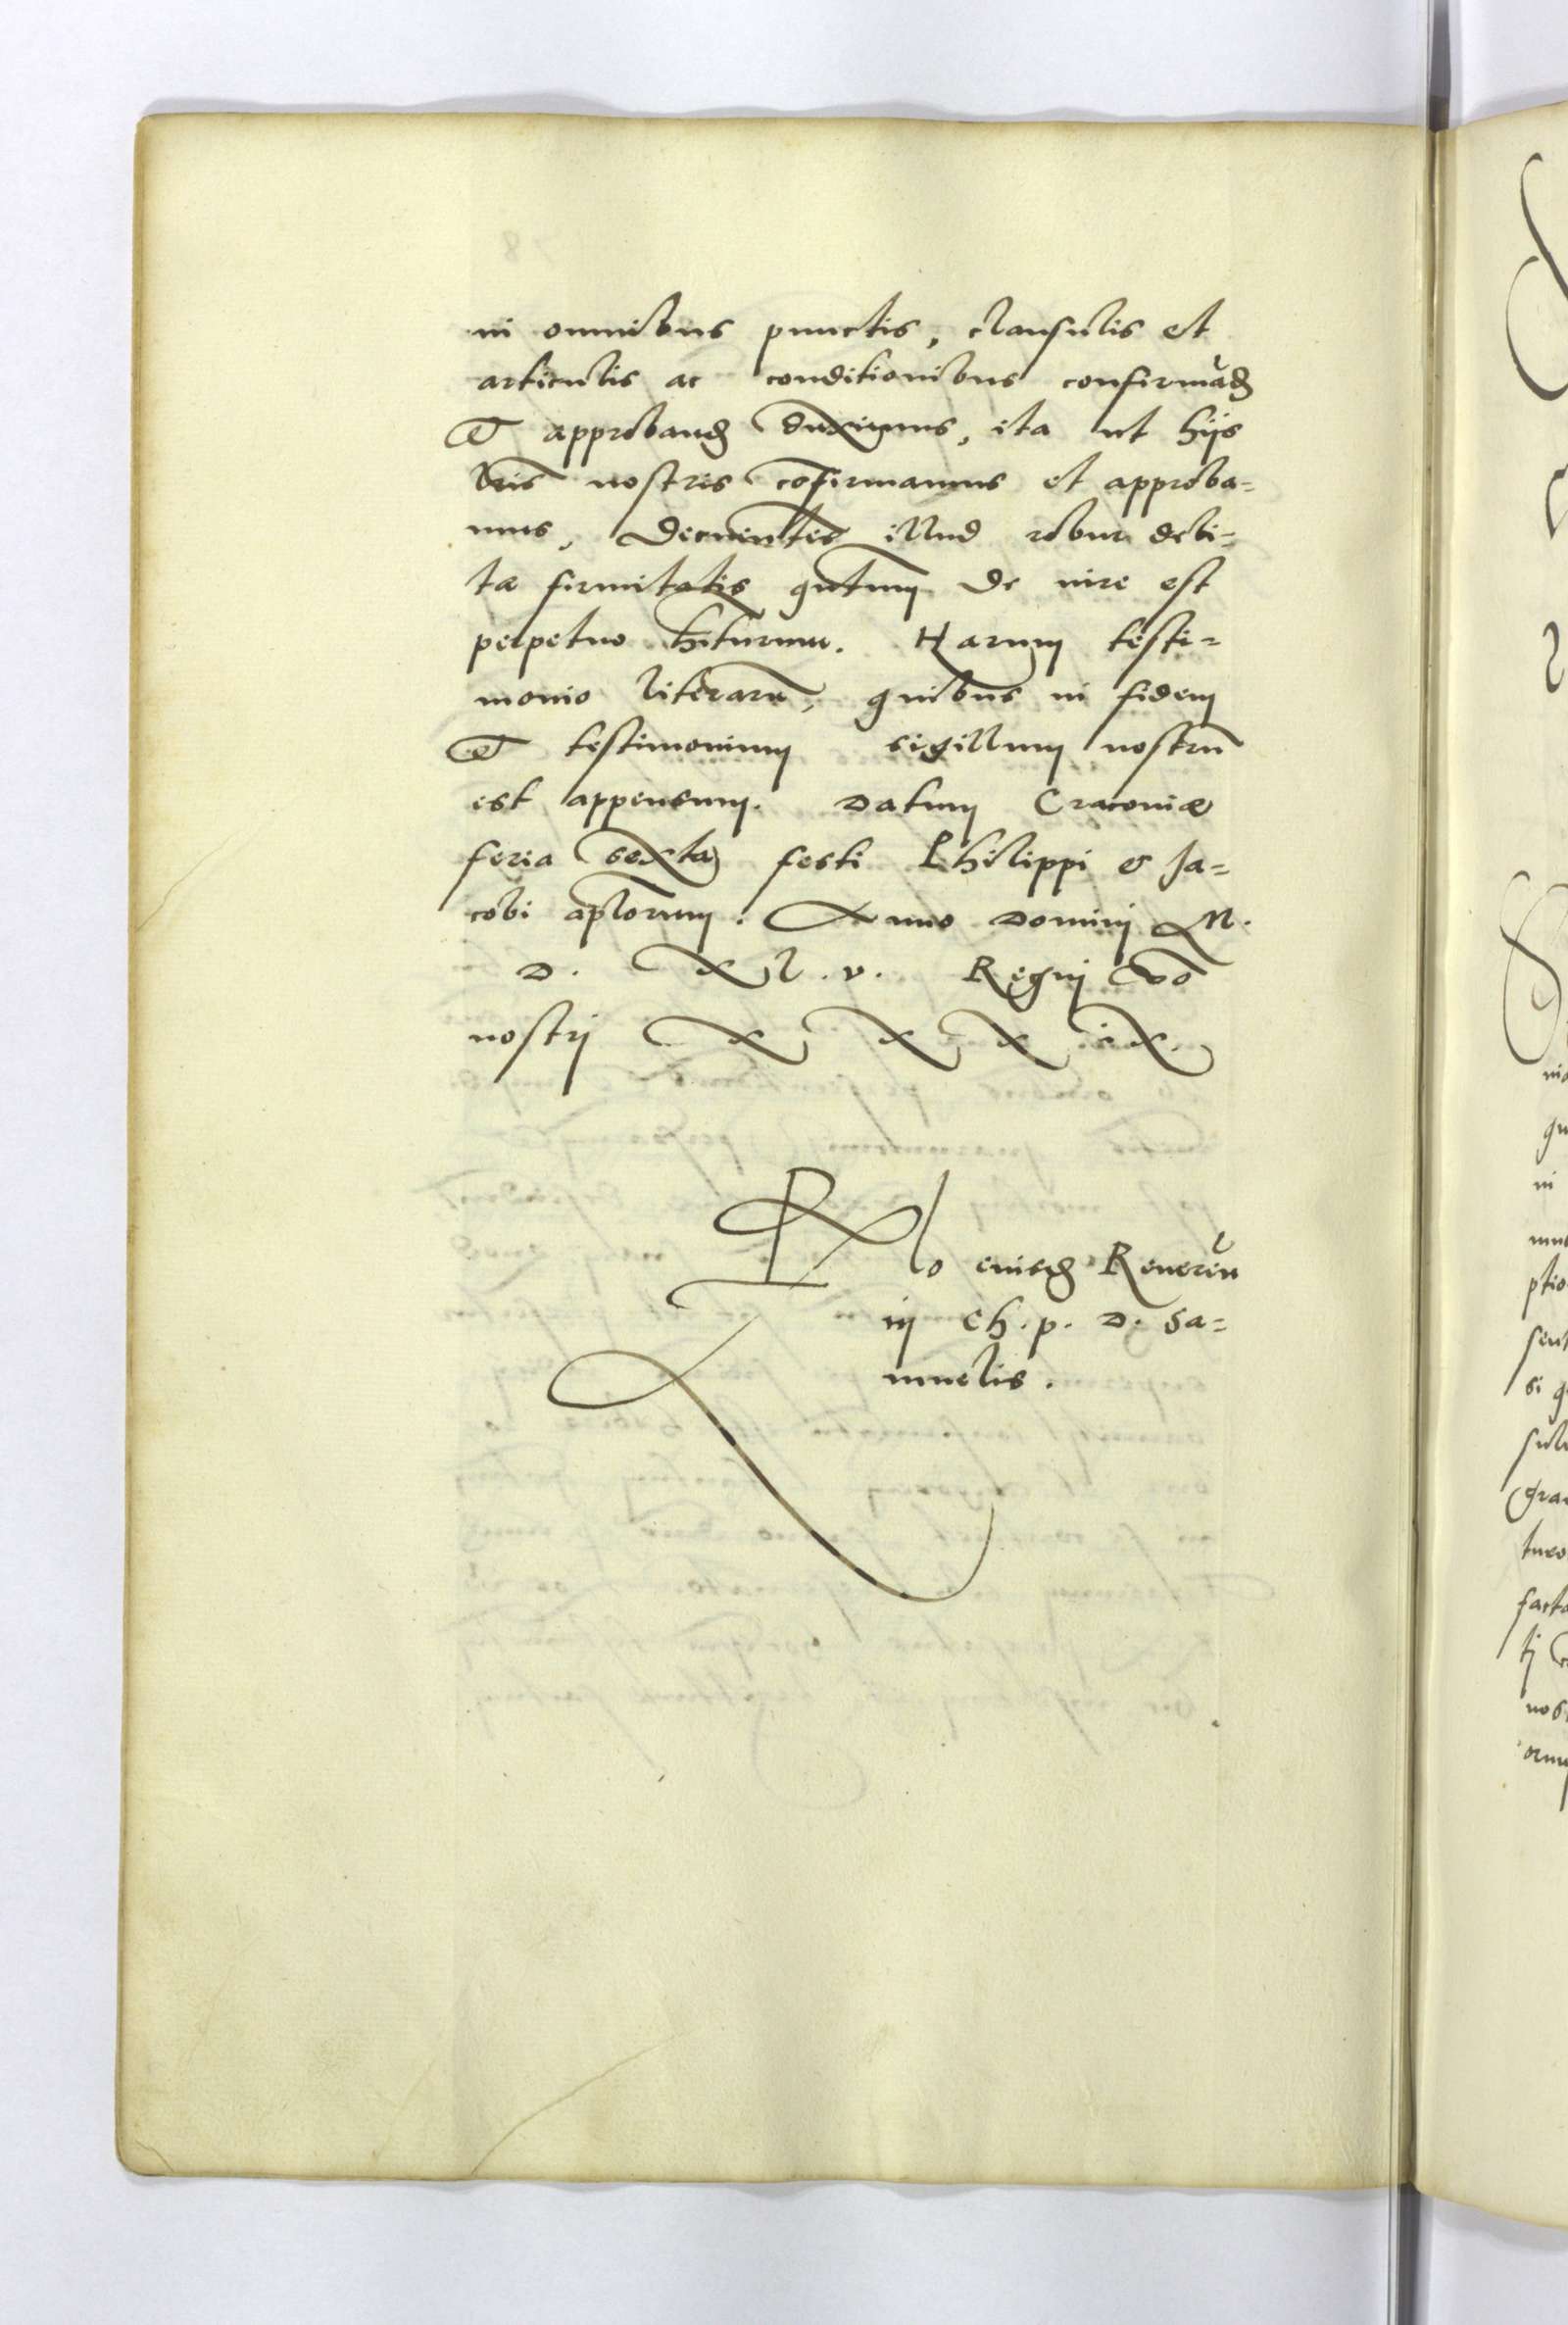 in omnibus punctis, clausulis et
articulis ac conditionibus confirmãd
et approband duximus, ita ut hijs
lr̃is nostris cõfirmamus et approba=
mus, Decernentes illud robur debi=
tæ firmitatis qũtum de iure est
perpetuo hiturum. Harum testi=
monio literarũ, quibus in fidem
et testimonium sigillum nostrũ
est appensum. Datum Cracoviæ
feria sexta festi Philippi & Ja=
cobi apl̃orum. Anno Domini M.
D. XL.v. Regnj vº
nostrj XXXiX.
Rlo eiusd Reveren
in Ch. p. D. Sa=
muelis.